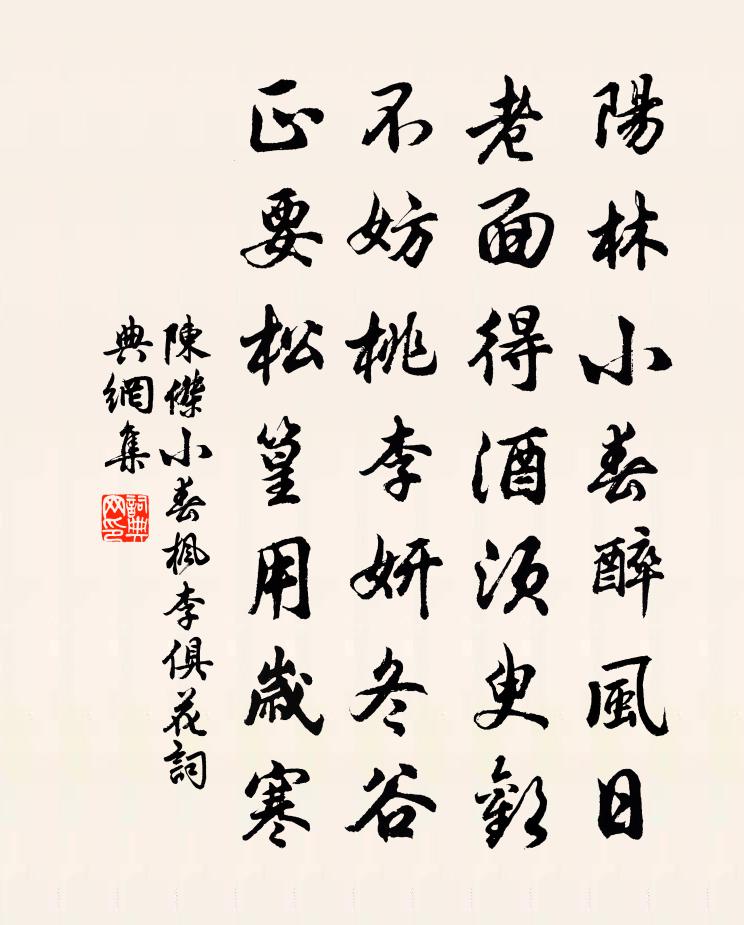 陽林小春醉風日
老面得酒須臾歡
不妨桃李妍冬谷
正要松篁用歲寒
陳傑小春楓李俱花詞
典網集
詞典
网印